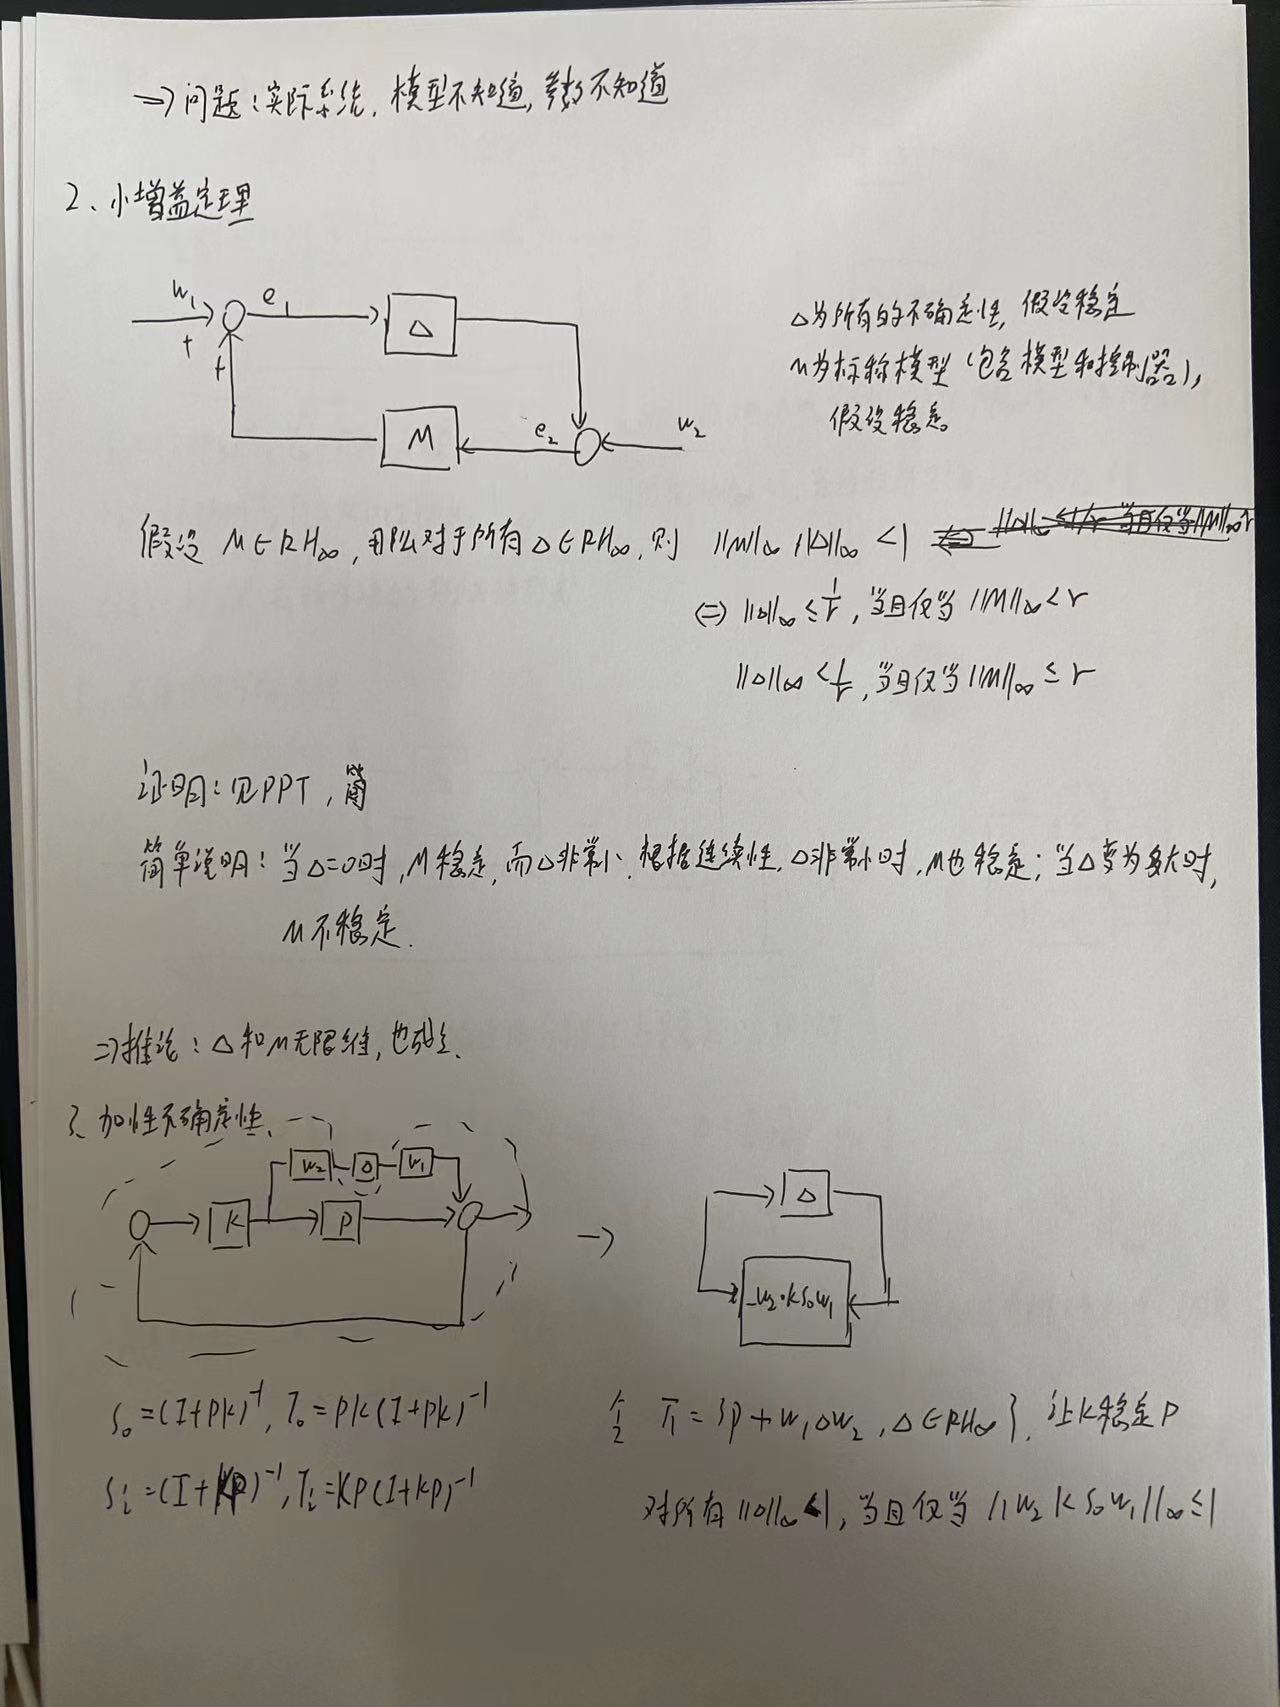 ⇒ 问题：实际系统，模型不知道，参数不知道
2、小增益定理
w₁ e₁
+ Δ
+
M e₂ w₂
Δ为所有的不确定性，假设稳定
M为标称模型（包含模型和控制器），
假设稳定
假设 M∈RH∞，那么对于所有 Δ∈RH∞，则 ||M||∞ ||Δ||∞ <1
⇔ ||Δ||∞ ≤ 1/r，当且仅当 ||M||∞ < r
||Δ||∞ < 1/r，当且仅当 ||M||∞ ≤ r
证明：见PPT，简
简单说明：当Δ=0时，M稳定，而Δ非常小，根据连续性，Δ非常小时，M也稳定；当Δ变为多大时，
M不稳定.
⇒推论：Δ和M无限维，也成立.
3、加性不确定性
W₂ Δ W₁
K P
→
Δ
-W₂·KS₀W₁
S₀=(I+PK)⁻¹, T₀=PK(I+PK)⁻¹
Sᵢ=(I+KP)⁻¹, Tᵢ=KP(I+KP)⁻¹
令 Π={P+W₁ΔW₂，Δ∈RH∞}，让K稳定P
对所有 ||Δ||∞<1，当且仅当 ||W₂KS₀W₁||∞≤1